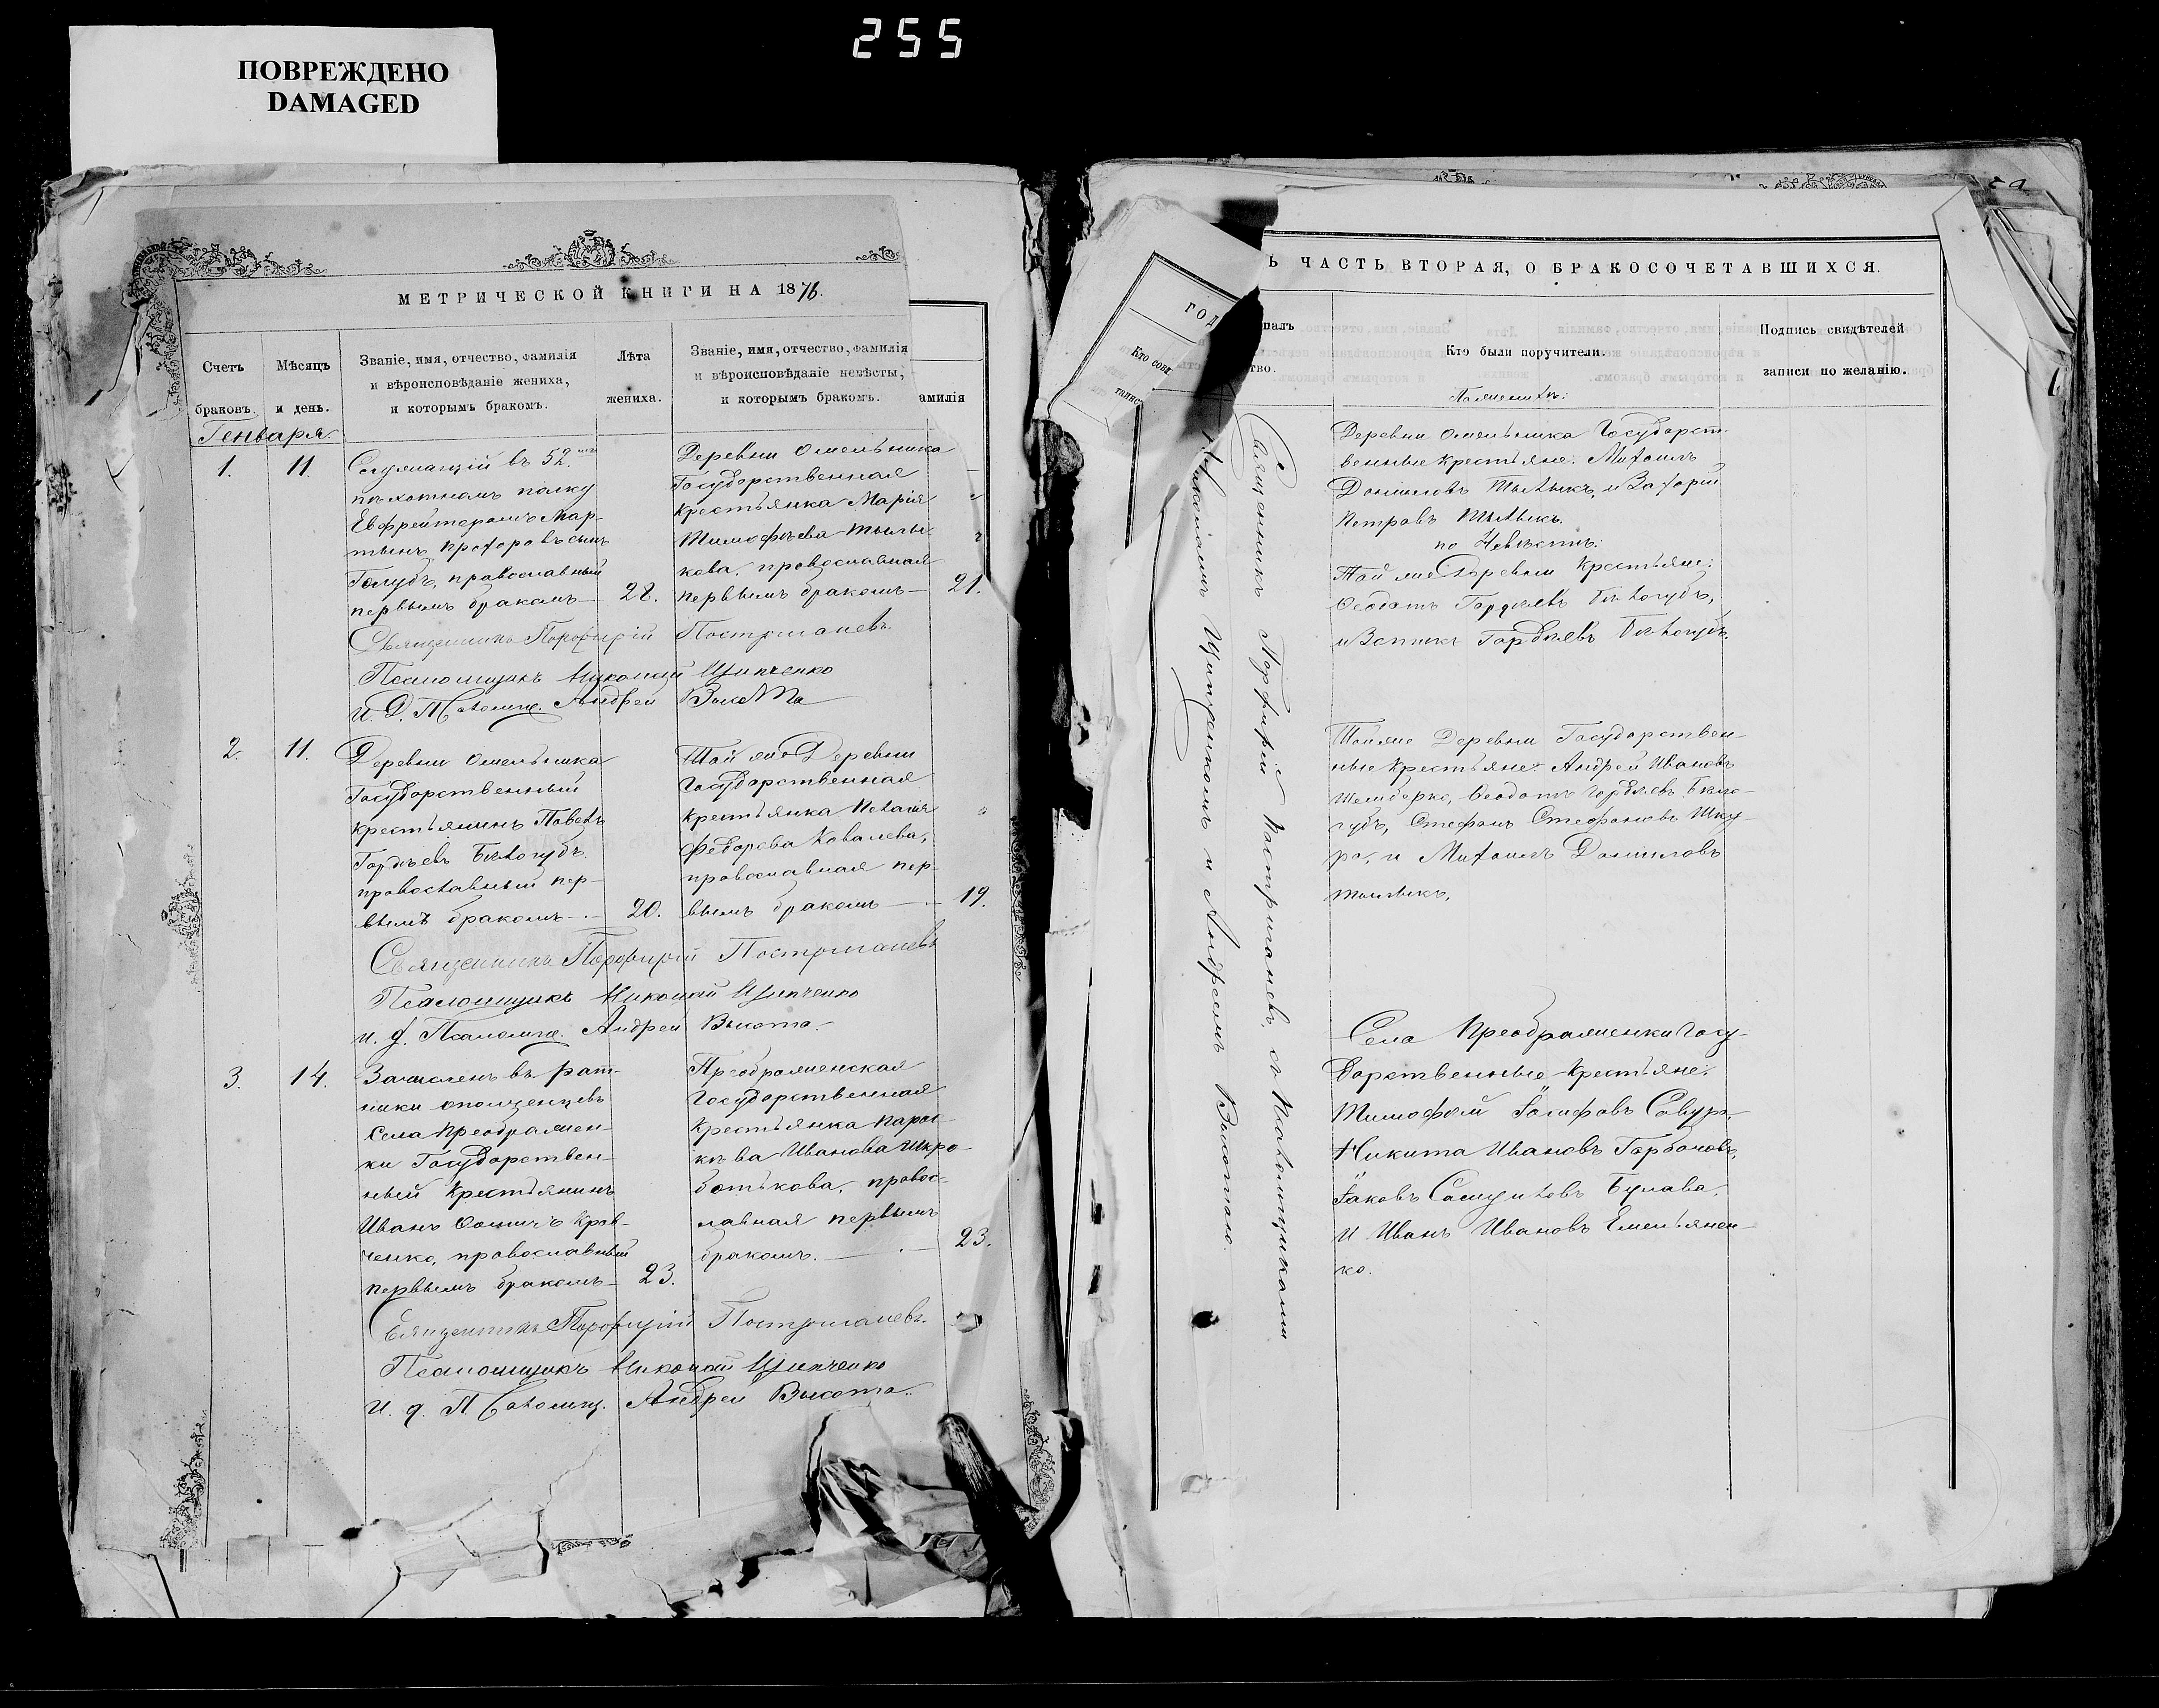 255
ПОВРЕЖДЕНО
DAMAGED
МЕТРИЧЕСКОЙ КНИГИ НА 1876.
Счетъ
браковъ.
Мѣсяцъ
и день.
Званіе, имя, отчество, фамилія
и вѣроисповѣданіе жениха,
и которымъ бракомъ.
Лѣта
жениха.
Званіе, имя, отчество, фамилія
и вѣроисповѣданіе невѣсты,
и которымъ бракомъ.
амилія
Генваря.
1.
11.
Служащій въ 52.мъ
пѣхотномъ полку
Ефрейторомъ Мар-
тынъ Прохоровъ сынъ
Голубъ, православный
первымъ бракомъ
28.
Деревни Омельника
Государственная
крестьянка Марія
Тимофѣева Тылы-
кова, православная
первымъ бракомъ
21.
Священникъ Порфирій Постригачевъ.
Псаломщикъ Николай Ципченко
И. Д. Псаломщ. Андрей Высота
2.
11.
Деревни Омельника
Государственный
крестьянинъ Павелъ
Гордѣевъ Бѣлогубъ.
православный пер-
вымъ бракомъ
20.
Той же Деревни
Государственная
крестьянка Пелагія
Федорова Ковалева,
православная пер-
вымъ бракомъ
19.
Священникъ Порфирій Постригачевъ
Псаломщикъ Николай Ципченко
и. д. Псаломщ. Андрей Высота.
3.
14.
Зачисленъ въ рат-
ники ополченцевъ
Села Преображен-
ки Государствен-
ный Крестьянинъ
Иванъ Кров-
ченко, православный
первымъ бракомъ
23.
Преображенская
Государственная
Крестьянка Парас-
кѣва Иванова Шкро-
ботькова, правос-
лавная первымъ
бракомъ.
23.
Священникъ Порфирій Постригачевъ.
Псаломщикъ Николай Ципченко
И. д. Псаломщ. Андрей Высота.
Ь ЧАСТЬ ВТОРАЯ, О БРАКОСОЧЕТАВШИХСЯ.
ГОД
Кто сов
таинс
шалъ
тво.
Кто были поручители.
Подпись свидѣтелей
записи по желанію.
По женихѣ:
Священникъ Порфирій Постригачевъ съ Псаломщиками
Николаемъ Ципченкомъ и Андреемъ Высотою.
Деревни Омельника Государст-
венные крестьяне: Михаилъ
Даниловъ Тылыкъ, и Захарій
Петровъ Тылыкъ.
по Невѣстѣ:
Той же Деревни Крестьяне:
Феодотъ Гордѣевъ Бѣлогубъ,
Гордѣевъ Бѣлогубъ.
Той же Деревни Государствен-
ные крестьяне: Андрей Ивановъ
Феодотъ Гордѣевъ Бѣло-
губъ, Стефанъ Стефановъ Шку-
ра, и Михаилъ Даниловъ
Тылыкъ.
Села Преображенки Госу-
дарственные Крестьяне:
Тимофей Іосифовъ Савура,
Никита Ивановъ Горбачовъ,
Іаковъ Самуиловъ Булава,
и Иванъ Ивановъ Емельянен-
ко.